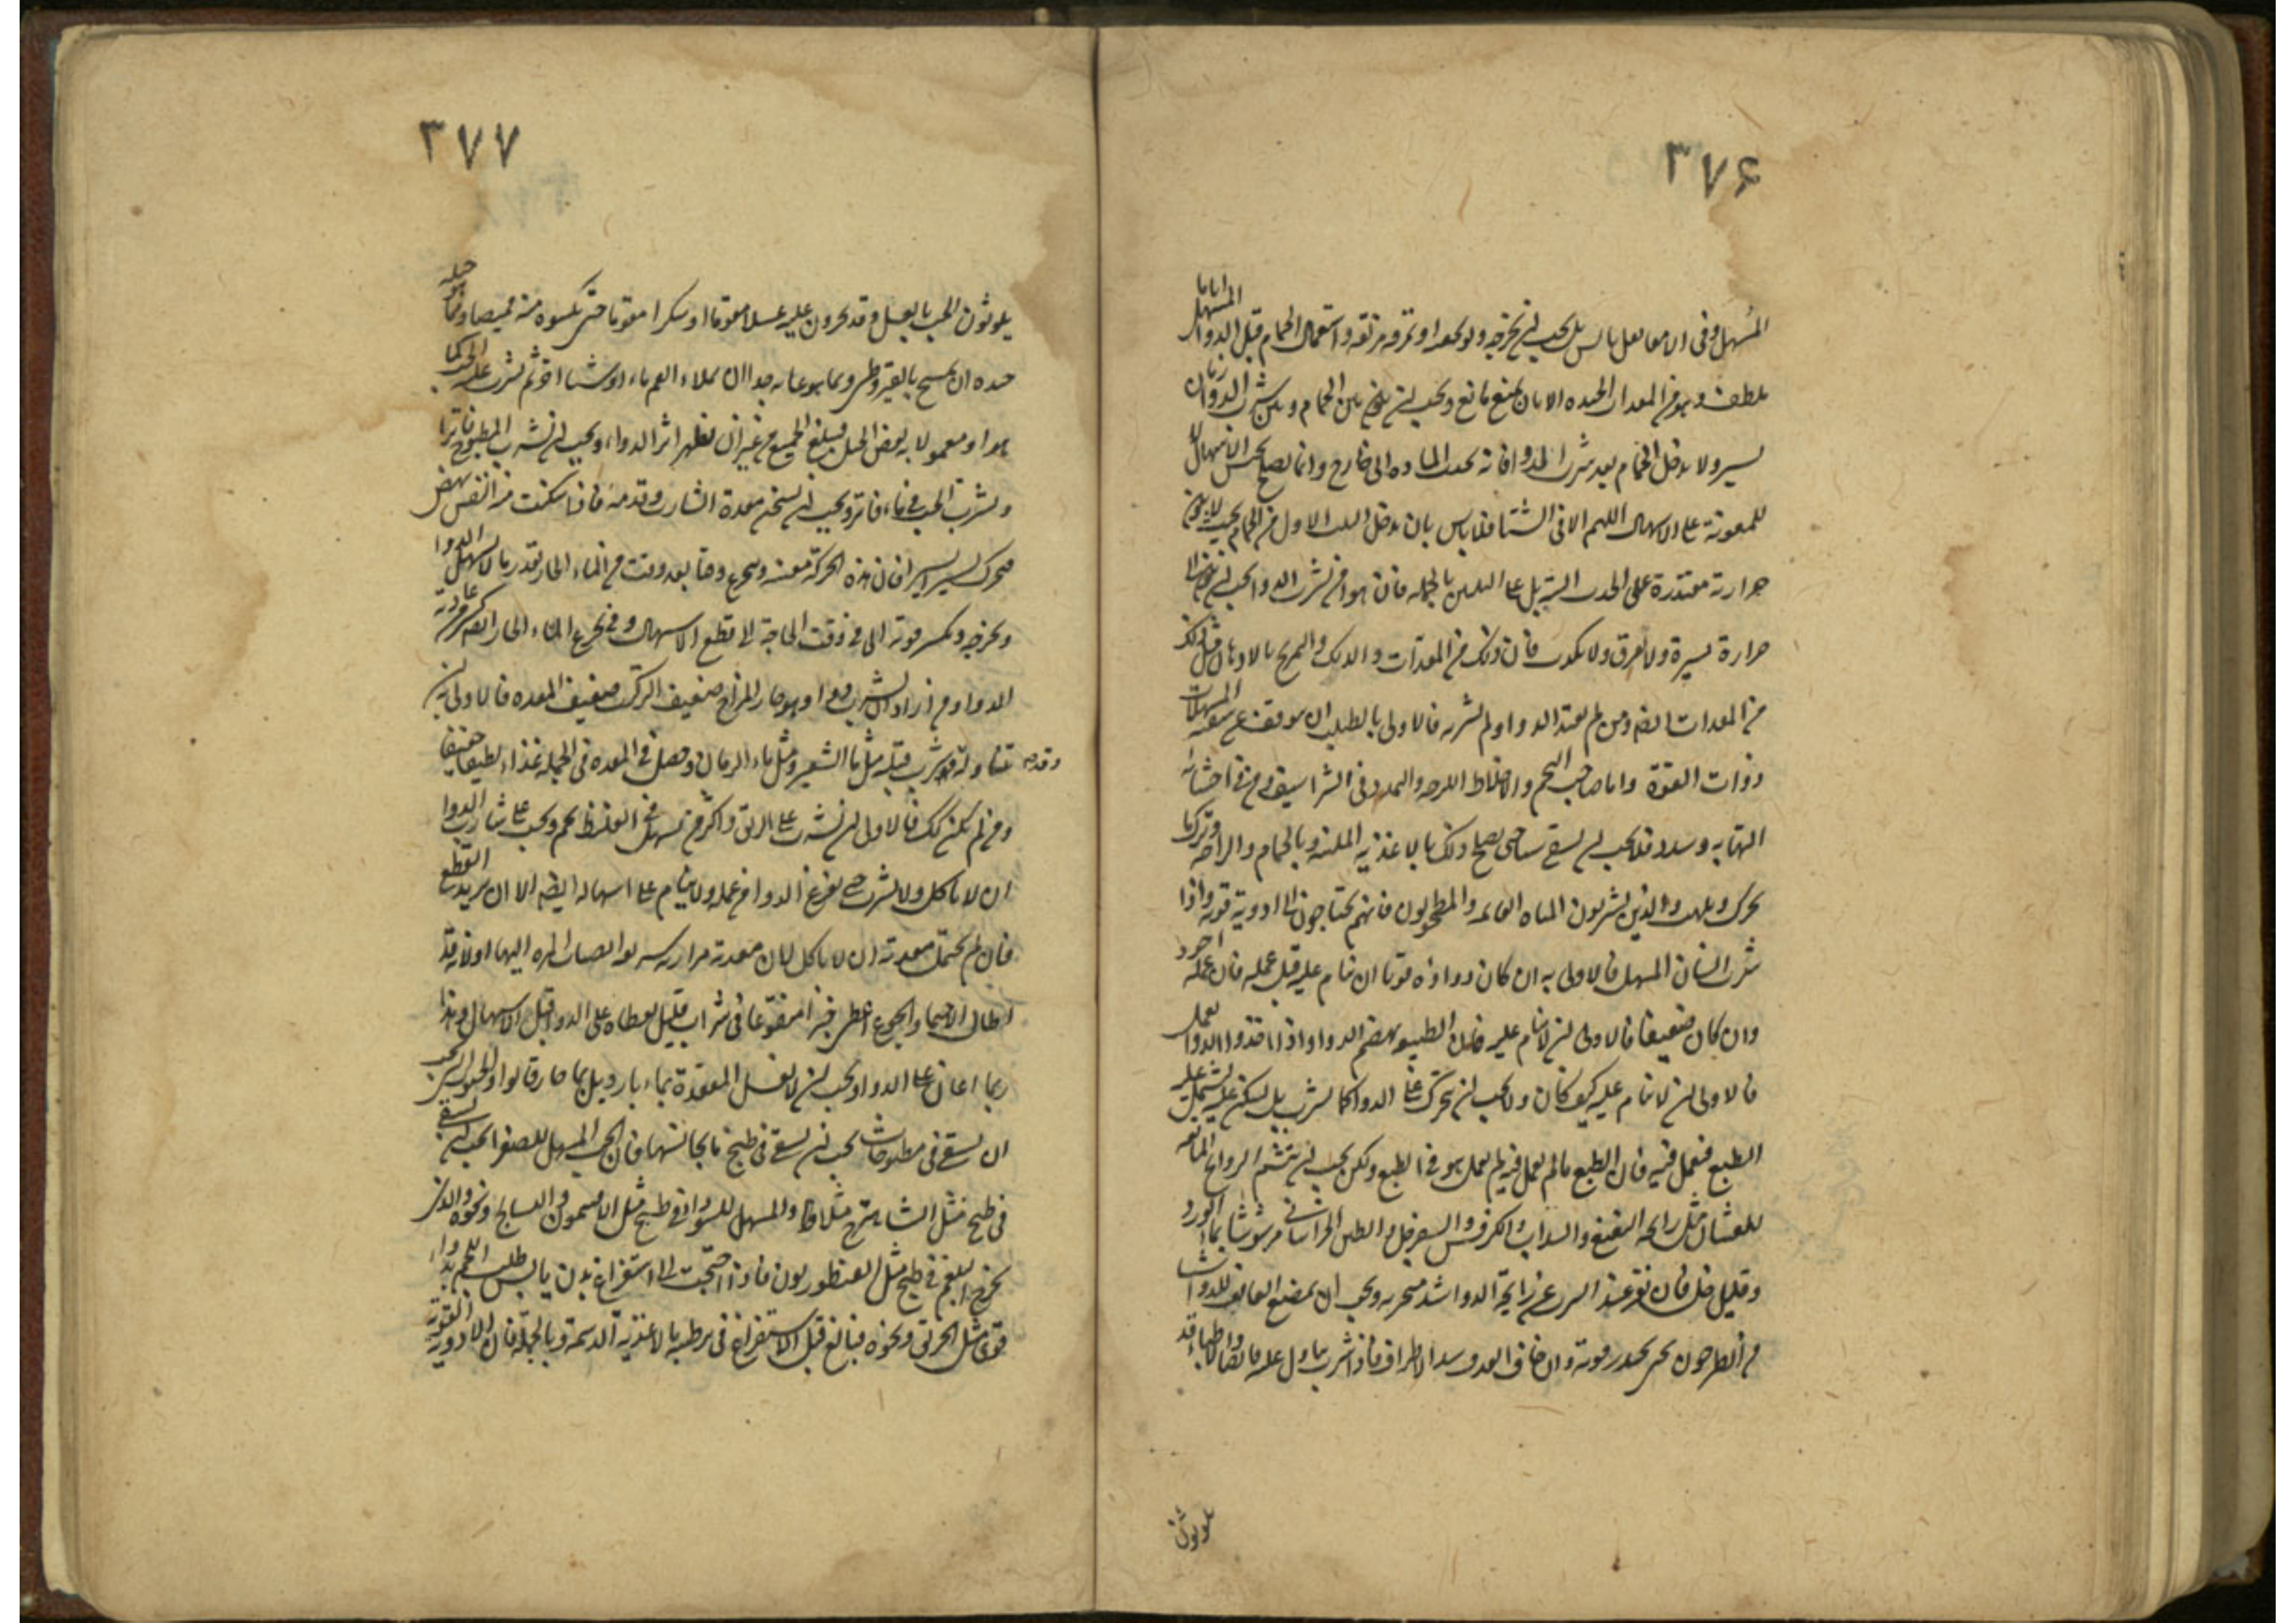 ٣٧۶
المسهل وفى الامعا ثفل يابس بل يجب ان يخرجه ولو بحقنة او بمرقة مزلقة واستعمال الحمام قبل الدواء المسهل اياما
ملطف وهو من المعدات الجيده الا ان يمنع مانع ويجب ان بين الحمام وبين شرب الدواء زمان
يسير ولا يدخل الحمام بعد شرب الدوا فانه يجذب الماده الى خارج وانما يصلح لحبس الاسهال لا
للمعونة على الاسهال اللهم الا فى الشتا فلا باس بان يدخل البيت الاول من الحمام بحيث لا يكون
حرارته مقتدرة على الجذب البتة بل على التليين بالجمله فان هوا من يشرب الدوا يجب ان يكون الى
حرارة يسيرة ولا يعرق ولا يكرب فان ذلك من المعدات والدلك والتمريخ بالادهان قبل ذلك
من المعدات ايضا ومن لم يعتد الدوا ولم يشربه فالاولى بالطبيب ان يتوقف عن سقيه المسهلات
ذوات القوة واما صاحب التخم والاخلاط اللزجه والتمدد فى الشراسيف ومن فى احشائه
التهاب وسدد فلا يجب ان يسقى شيئا حتى يصلح ذلك بالاغذيه الملينه وبالحمام والراحه وترك ما
يحرك ويلهب والذين يشربون المياه القائمه والمطحولون فانهم يحتاجون الى ادوية قويه واذا
شرب انسان المسهل فالاولى به ان كان دواؤه قويا ان ينام عليه قبل عمله فان عمله اجود
وان كان ضعيفا فالاولى ان لا ينام عليه فان الطبيعه يهضم الدوا واذا اخذ الدوا يعمل
فالاولى ان لا ينام عليه كيف كان ولا يجب ان يتحرك على الدوا كما يشرب بل يسكن عليه ليشتمل عليه
الطبع فيعمل فيه فان الطبع ما لم يعمل فيه لم يعمل هو فى الطبع ولكن يجب ان يتشمم الروائح المانعه
للغثيان مثل رائحه النعنع والسداب والكرفس والسفرجل والطين الخراسانى مرشوشا بماء الورد
وقليل خل فان نفر عند الشرب عن رايحة الدوا شد منخريه ويجب ان يمضغ العائف للدوا شيئا
من الطرخون حتى يخدر قوته وان خاف القذف شد الاطراف فاذا شرب تناول عليه قابضا والاطباء قد
يلوثون
٣٧٧
يلوثون الحب بالعسل وقد يجرون عليه عسلا مقوما او سكرا مقوما حتى يكسوه منه قميصا ومما حيله
جيده ان يمسح بالقيروطى ومما هو غايه جدا ان يملاء الفم ماء او شيئا اخر ثم يشرب عليه الحب كما
هو او معمولا به بعض الحيل فيبلع الجميع من غير ان يظهر اثر الدواء ويجب ان يشرب المطبوخ فاترا
ويشرب الحب فى ماء فاتر ويجب ان يسخن معدة الشارب وقدمه فاذا سكنت منه النفس نهض
فتحرك يسيرا يسيرا فان هذه الحركة معينه ويتجرع وقتا بعد وقت من الماء الحار بقدر ما لا يسهل الدوا
ويخرجه ويكسر قوته الى فى وقت الحاجة الى قطع الاسهال وفى تجرع الماء الحار ايضا كسر من عادية
الدوا ومن اراد ان يشرب دوا وهو حار المزاج ضعيف التركيب ضعيف المعده فالاولى به ان
يتناوله وقد شرب قبله مثل ماء الشعير ومثل ماء الرمان وحصل فى المعده فى الجمله غذاء لطيفا خفيفا
وقدمه
ومن لم يكن كذلك فالاولى ان يشرب على الريق واكثر من يسهل فى القيظ يحم ويجب على شارب الدوا
ان لا ياكل ولا يشرب حتى يفرغ الدوا من عمله ولا ينام على اسهاله ايضا الا ان يريد القطع
فان لم يحتمل معدته ان لا ياكل لان معدته مراريه سريعه انصباب المره اليها او لانه قد
اطال الاحتماء والجوع اعطى خبزا منقوعا فى شراب قليل يعطاه على الدوا قبل الاسهال وهذا
ربما اعان على الدوا ويجب ان لا يغسل المقعدة بماء بارد بل بماء حار قالوا والحبوب التى يجب
ان يسقى فى مطبوخات يجب ان يسقى فى طبيخ ما يجانسها فان الحب المسهل للصفرا يجب ان يسقى
فى طبيخ مثل الشاهترج مثلا والمسهل للسوداء فى طبيخ مثل الافتيمون والبسفايج ونحوه والذى
يخرج البلغم فى طبيخ مثل القنطوريون فاذا احتجت الى استفراغ بدن يابس صلب اللحم بدواء
قوى مثل الخربق ونحوه فبالغ قبل الاستفراغ فى ترطيبه بالاغذية الدسمة وبالجملة فان الادوية القوية